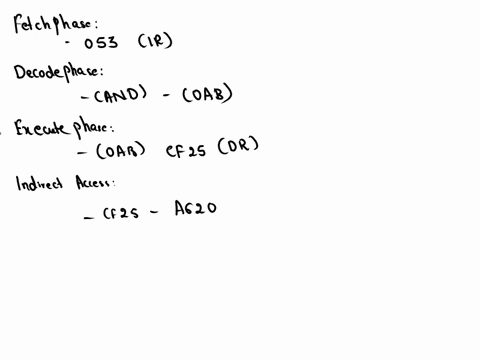 Fetch phase:
- 053 (IR)
Decode phase:
- (AND) - (OAB)
Execute phase:
- (OAB) CF25 (DR)
Indirect Access:
- CF25 - A620